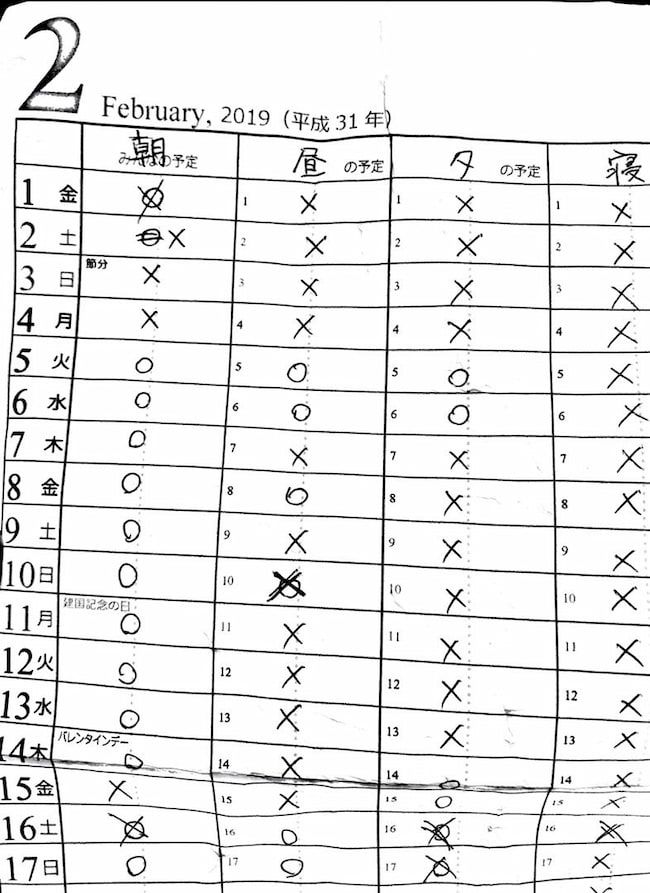 2
February, 2019 (平成 31 年)
朝 みんなの予定 昼 の予定 夕 の予定 寝
1 金 ⊗ 1 × 1 × 1 ×
2 土 × 2 × 2 × 2 ×
3 日 節分 × 3 × 3 × 3 ×
4 月 × 4 × 4 × 4 ×
5 火 ○ 5 ○ 5 ○ 5 ×
6 水 ○ 6 ○ 6 ○ 6 ×
7 木 ○ 7 × 7 × 7 ×
8 金 ○ 8 ○ 8 × 8 ×
9 土 ○ 9 × 9 × 9 ×
10 日 ○ 10 ⊗ 10 × 10 ×
11 月 建国記念の日 ○ 11 × 11 × 11 ×
12 火 ○ 12 × 12 × 12 ×
13 水 ○ 13 × 13 × 13 ×
14 木 バレンタインデー ○ 14 × 14 ○ 14 ×
15 金 × 15 × 15 ○ 15 ×
16 土 ⊗ 16 ○ 16 ⊗ 16 ×
17 日 ○ 17 ○ 17 ⊗ 17 ×